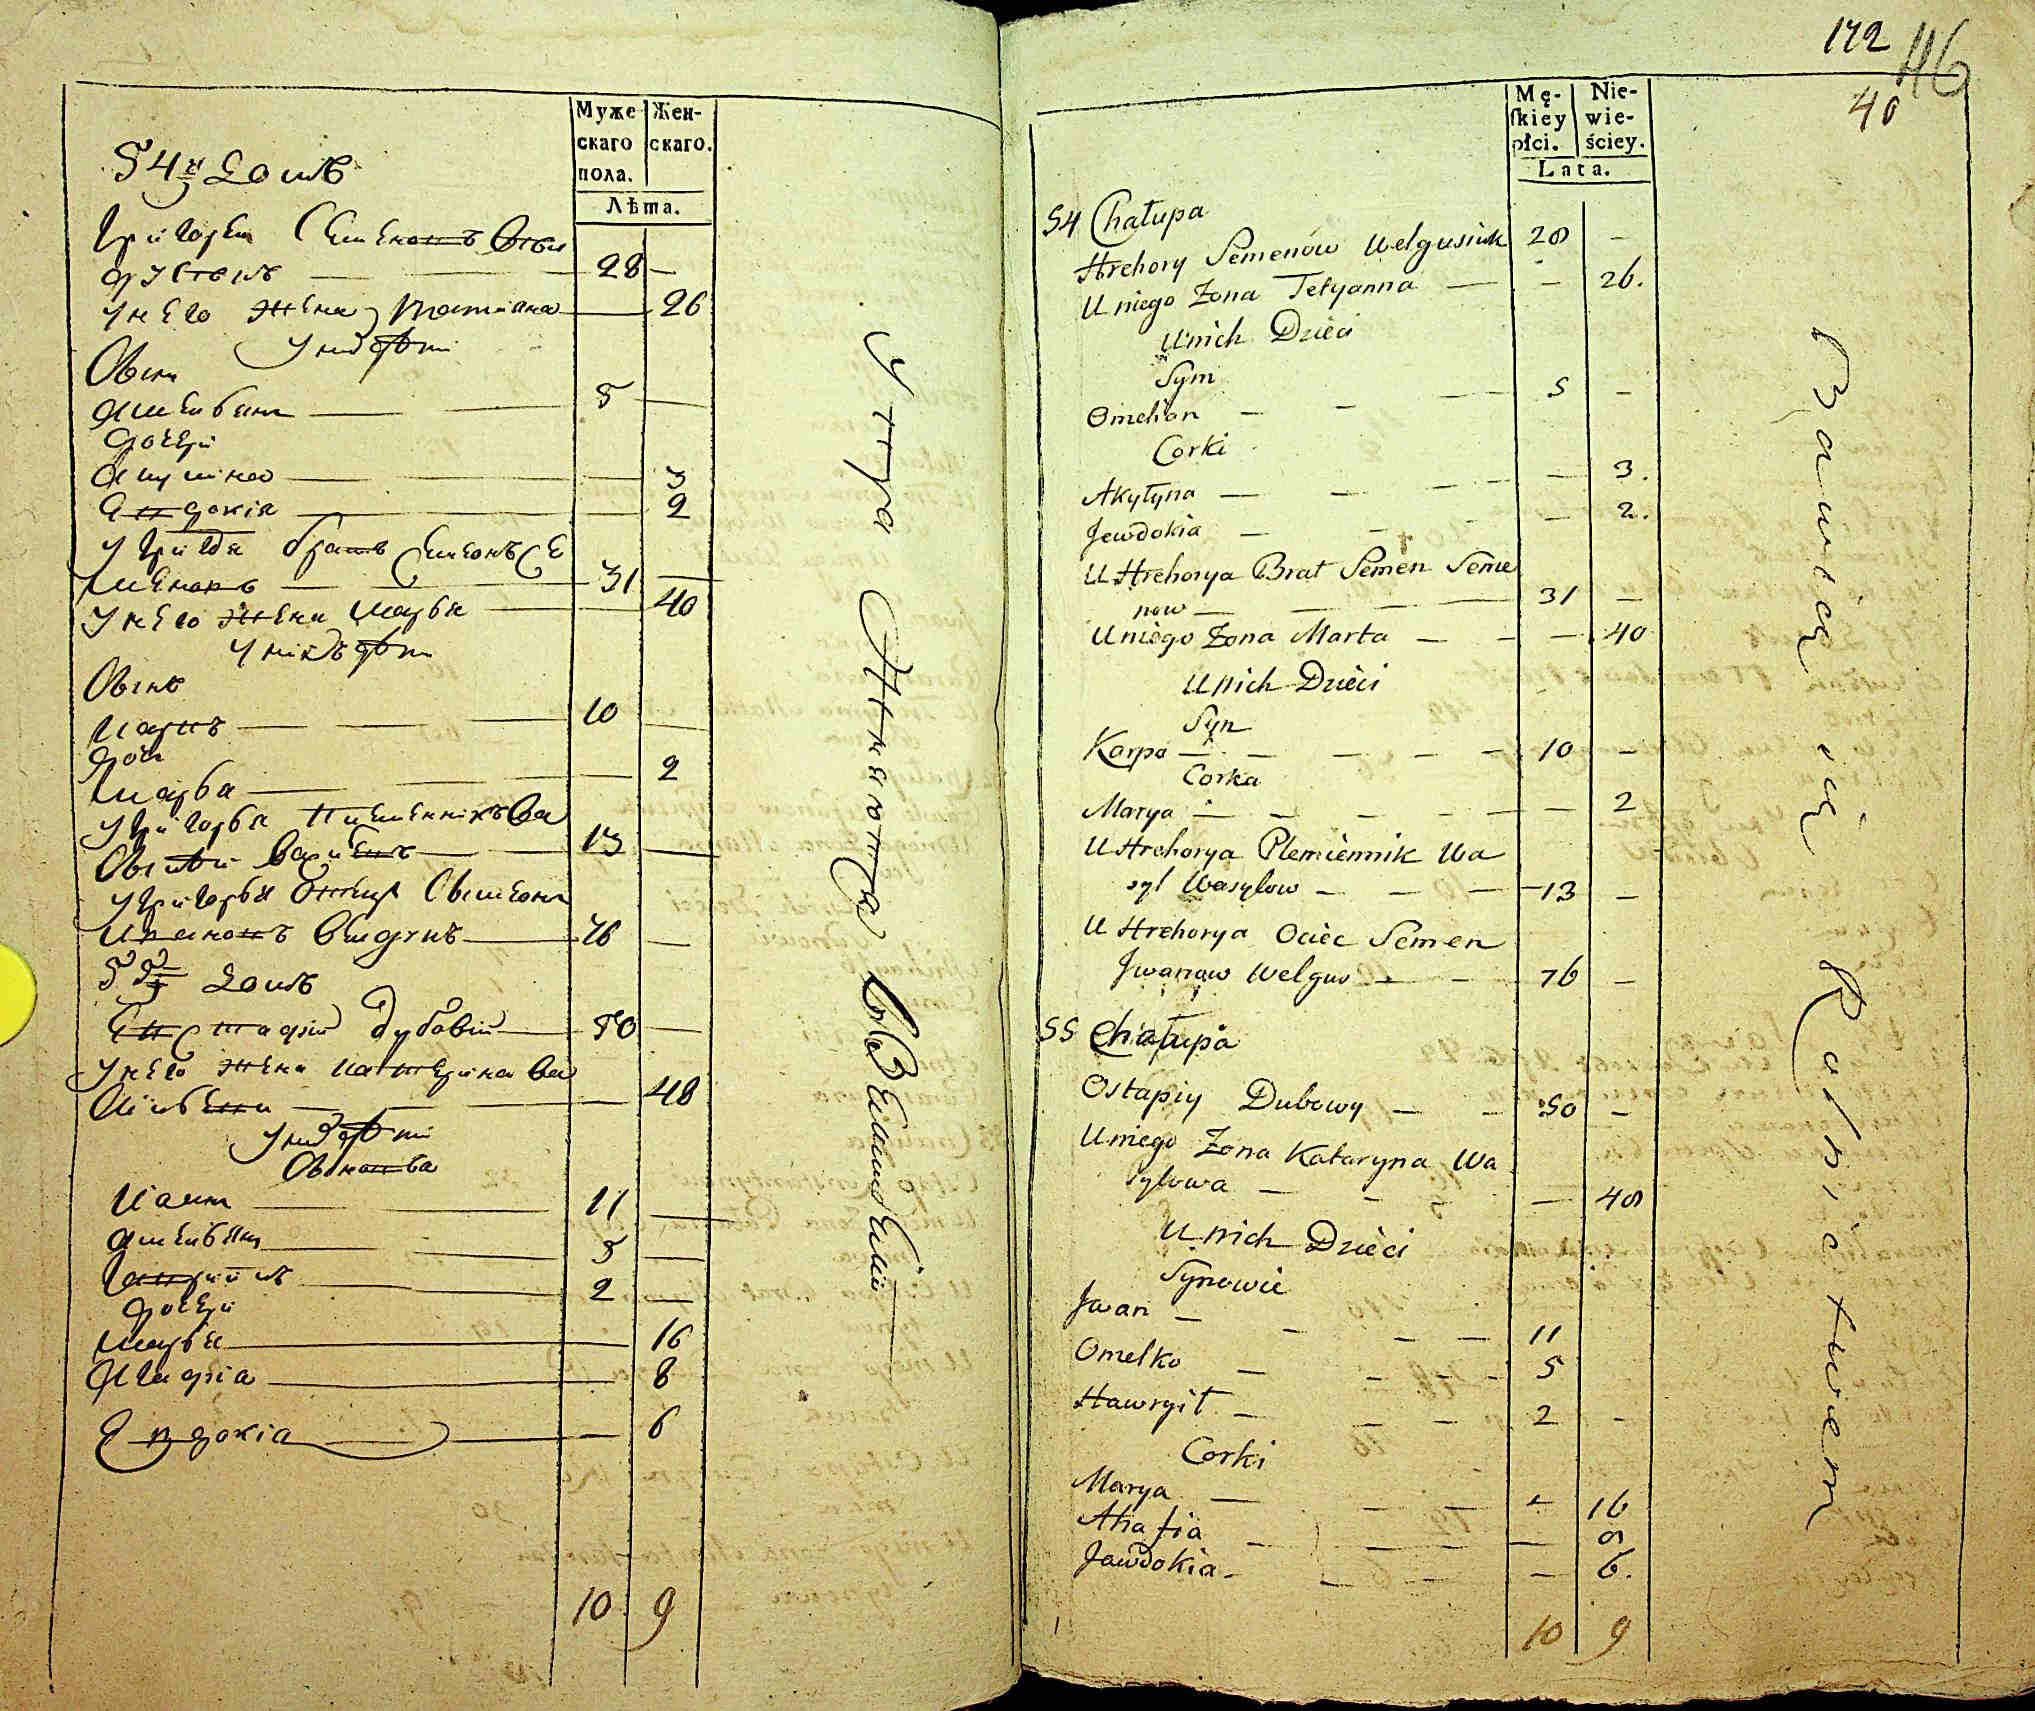 Муже-
скаго
пола.
Жен-
скаго.
Лѣта.
54й Домъ
Григорей Семеновъ
28 —
У него жена Татіана — 26
У нихъ дѣти
Сынъ
Амельянъ — 5 —
Дочери
Акулина — 3
Евдокія — 2
У Григорья братъ Семенъ Се
меновъ — 31 —
У него жена Марфа — 40
У нихъ дѣти
Сынъ
Карпъ — 10 —
Дочь
Марья — 2
У Григорья племенникъ Ва
силій Васильевъ — 13 —
У Григорья отецъ Семенъ
Ивановъ — 76 —
55й Домъ
Евстафій Дубовій — 50 —
У него жена Катерина Ва
сильева — 48
У нихъ дѣти
Сыновья
Иванъ — 11 —
Амельянъ — 5 —
Гаврило — 2 —
Дочери
Марья — 16
Агафія — 8
Евдокія — 6
10 9
172
46
40
Mę-
skiey
płci.
Nie-
wie-
ściey.
Lata.
54 Chałupa
Hrehory Semenow Welgusiuk 28 —
U niego Żona Tetyanna — — 26.
U nich Dzieci
Sym
Omelian — — — 5 —
Corki
Akyłyna — — — — 3.
Jewdokia — — — — 2.
U Hrehorya Brat Semen Seme
now — — — — 31 —
U niego Żona Marta — — — 40
U nich Dzieci
Syn
Karpo — — — — — 10 —
Corka
Marya — — — — — — 2
U Hrehorya Plemiennik Wa
syl Wasylow — — — 13 —
U Hrehorya Ociec Semen
Jwanow Welgus — — — 76 —
55 Chałupa
Ostapiy Dubowy — — 50 —
U niego Żona Kataryna Wa
sylowa — — — 48
U nich Dzieci
Synowie
Jwan — — — — 11
Omelko — — — — 5
Hawryił — — — 2 —
Corki
Marya — — — — 16
Ahafia — — — — — 8
Jawdokia — — — — 6.
10 9